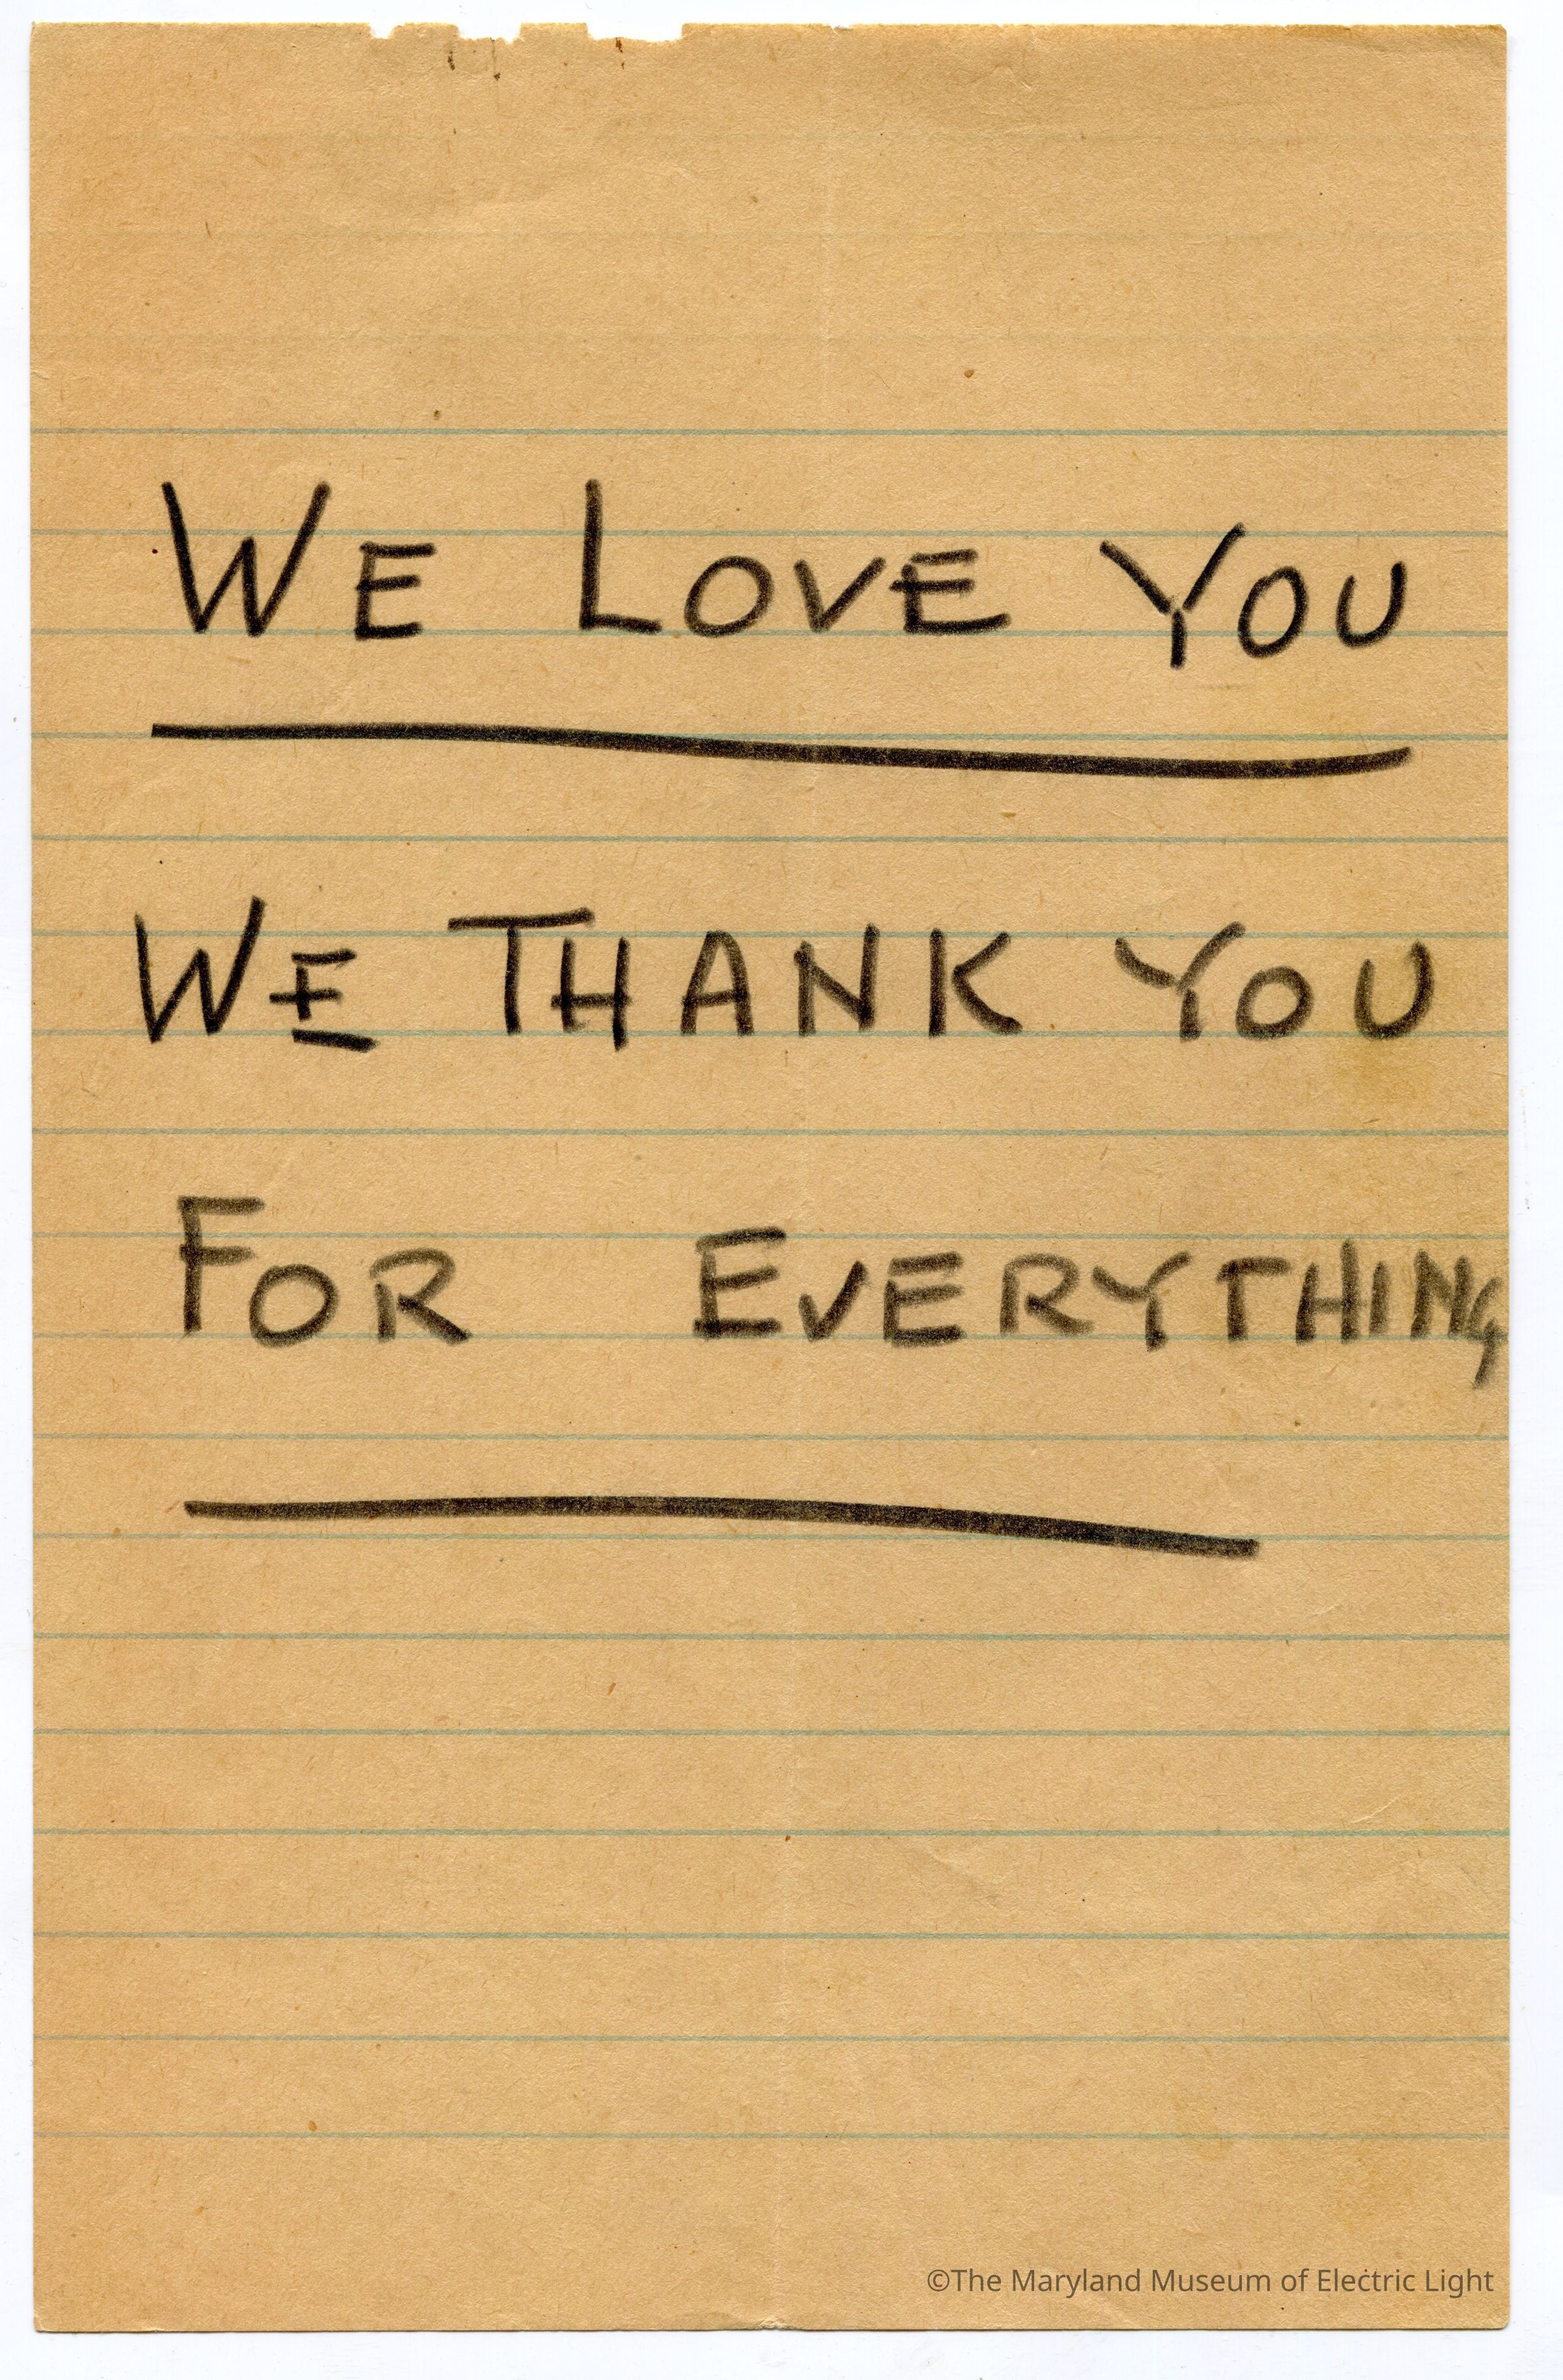 WE LOVE YOU
WE THANK YOU
FOR EVERYTHING
©The Maryland Museum of Electric Light